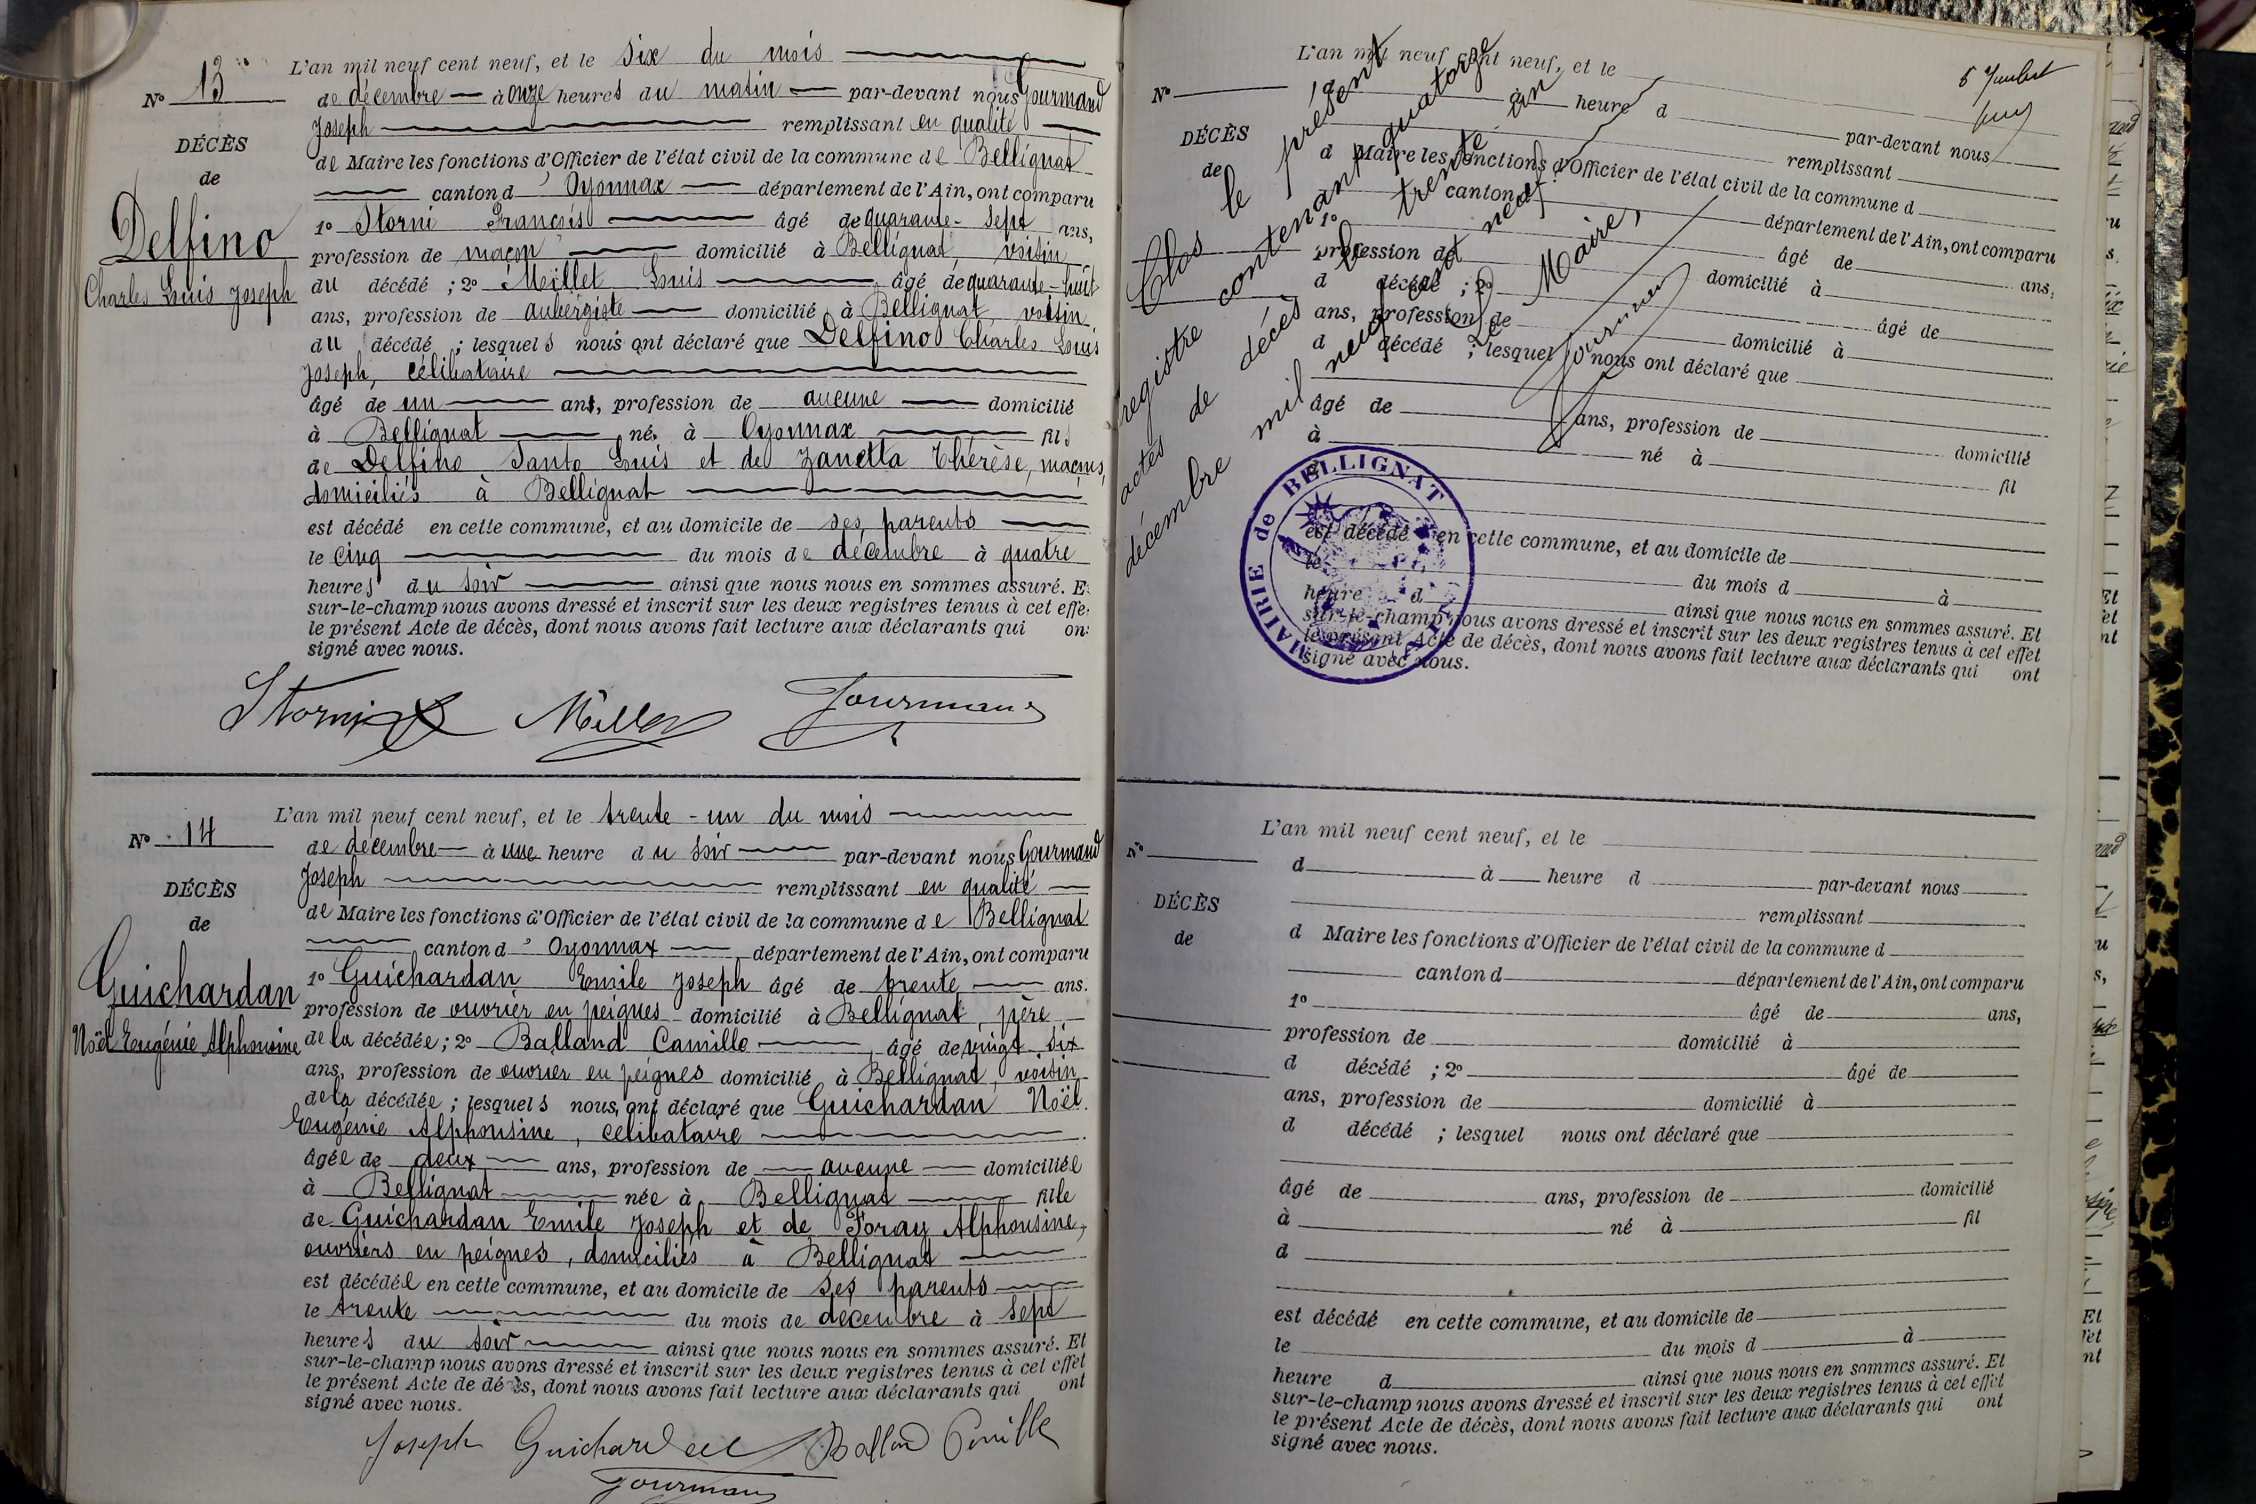 L'an mil neuf cent neuf, et le six du mois
No 13
de décembre à onze heures du matin par-devant nous Gourmand
Joseph remplissant en qualité
DÉCÈS
de Maire les fonctions d'Officier de l'état civil de la commune de Bellignat
de
canton d'Oyonnax département de l'Ain, ont comparu
Delfino
Charles Louis Joseph
1o Storni François âgé de quarante-sept ans,
profession de maçon domicilié à Bellignat, voisin
du décédé ; 2o Millet Louis âgé de quarante-huit
ans, profession de aubergiste domicilié à Bellignat, voisin
du décédé ; lesquels nous ont déclaré que Delfino Charles Louis
Joseph, célibataire
âgé de un ans, profession de aucune domicilié
à Bellignat né à Oyonnax fils
de Delfino Santo Louis et de Zanetta Thérèse, maçons,
domiciliés à Bellignat
est décédé en cette commune, et au domicile de ses parents
le cinq du mois de décembre à quatre
heures du soir ainsi que nous nous en sommes assuré. E
sur-le-champ nous avons dressé et inscrit sur les deux registres tenus à cet effe
le présent Acte de décès, dont nous avons fait lecture aux déclarants qui on
signé avec nous.
Storni Millet Gourmand
L'an mil neuf cent neuf, et le trente-un du mois
No 14
de décembre à une heure du soir par-devant nous Gourmand
Joseph remplissant en qualité
DÉCÈS
de Maire les fonctions d'Officier de l'état civil de la commune de Bellignat
de
canton d'Oyonnax département de l'Ain, ont comparu
Guichardan
Noël Eugénie Alphonsine
1o Guichardan Emile Joseph âgé de trente ans.
profession de ouvrier en peignes domicilié à Bellignat, père
de la décédée ; 2o Balland Camille âgé de vingt-six
ans, profession de ouvrier en peignes domicilié à Bellignat, voisin
de la décédée ; lesquels nous ont déclaré que Guichardan Noël
Eugénie Alphonsine, célibataire
âgée de deux ans, profession de aucune domiciliée
à Bellignat née à Bellignat fille
de Guichardan Emile Joseph et de Foray Alphonsine,
ouvriers en peignes, domiciliés à Bellignat
est décédée en cette commune, et au domicile de ses parents
le trente du mois de décembre à sept
heures du soir ainsi que nous nous en sommes assuré. Et
sur-le-champ nous avons dressé et inscrit sur les deux registres tenus à cet effet
le présent Acte de décès, dont nous avons fait lecture aux déclarants qui ont
signé avec nous.
Joseph Guichardan Balland Camille
Gourmand
L'an mil neuf cent neuf, et le
No
à heure d par-devant nous
remplissant
DÉCÈS
de
d Maire les fonctions d'Officier de l'état civil de la commune d
canton d département de l'Ain, ont comparu
1o âgé de ans,
profession de domicilié à
d décédé ; 2o âgé de
ans, profession de domicilié à
d décédé ; lesquel nous ont déclaré que
âgé de ans, profession de domicilié
à né à fil
est décédé en cette commune, et au domicile de
le du mois d à
heure d ainsi que nous nous en sommes assuré. Et
sur-le-champ nous avons dressé et inscrit sur les deux registres tenus à cet effet
le présent Acte de décès, dont nous avons fait lecture aux déclarants qui ont
signé avec nous.
Clos le présent
registre contenant quatorze
actes de décès le trente un
décembre mil neuf cent neuf.
Le Maire,
Gourmand
MAIRIE de BELLIGNAT
No
L'an mil neuf cent neuf, et le
d à heure d par-devant nous
remplissant
DÉCÈS
de
d Maire les fonctions d'Officier de l'état civil de la commune d
canton d département de l'Ain, ont comparu
1o âgé de ans,
profession de domicilié à
d décédé ; 2o âgé de
ans, profession de domicilié à
d décédé ; lesquel nous ont déclaré que
âgé de ans, profession de domicilié
à né à fil
d
est décédé en cette commune, et au domicile de
le du mois d à
heure d ainsi que nous nous en sommes assuré. Et
sur-le-champ nous avons dressé et inscrit sur les deux registres tenus à cet effet
le présent Acte de décès, dont nous avons fait lecture aux déclarants qui ont
signé avec nous.